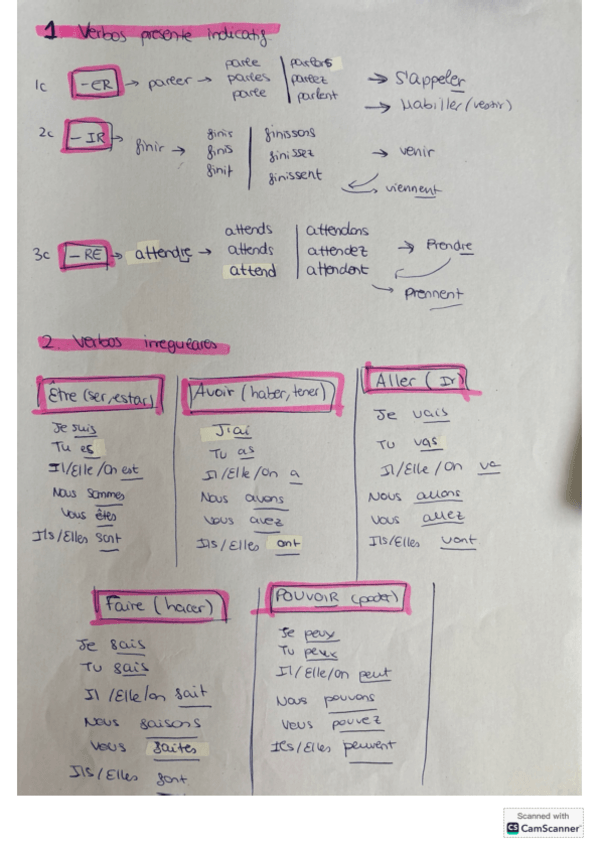 1. Verbos presente indicatif.
1c -ER → parler → parle | parlons → S'appeler
parles | parlez
parle | parlent → Habiller (vestir)
2c -IR → finir → finis | finissons
finis | finissez → venir
finit | finissent viennent
3c -RE → attendre → attends | attendons
attends | attendez → Prendre
attend | attendent → Prennent
2 Verbos irregulares
Être (ser, estar)
Je suis
Tu es
Il/Elle/On est
Nous sommes
Vous êtes
Ils/Elles sont
Avoir (haber, tener)
J'ai
Tu as
Il/Elle/On a
Nous avons
Vous avez
Ils/Elles ont
Aller (Ir)
Je vais
Tu vas
Il/Elle/On va
Nous allons
Vous allez
Ils/Elles vont
Faire (hacer)
Je fais
Tu fais
Il/Elle/on fait
Nous faisons
Vous faites
Ils/Elles font
POUVOIR (poder)
Je peux
Tu peux
Il/Elle/On peut
Nous pouvons
Vous pouvez
Ils/Elles peuvent
Scanned with
CS CamScanner